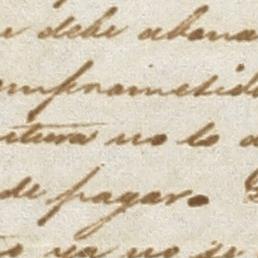 debe abona
omprometido
itura no lo
de pagar.
ya no se